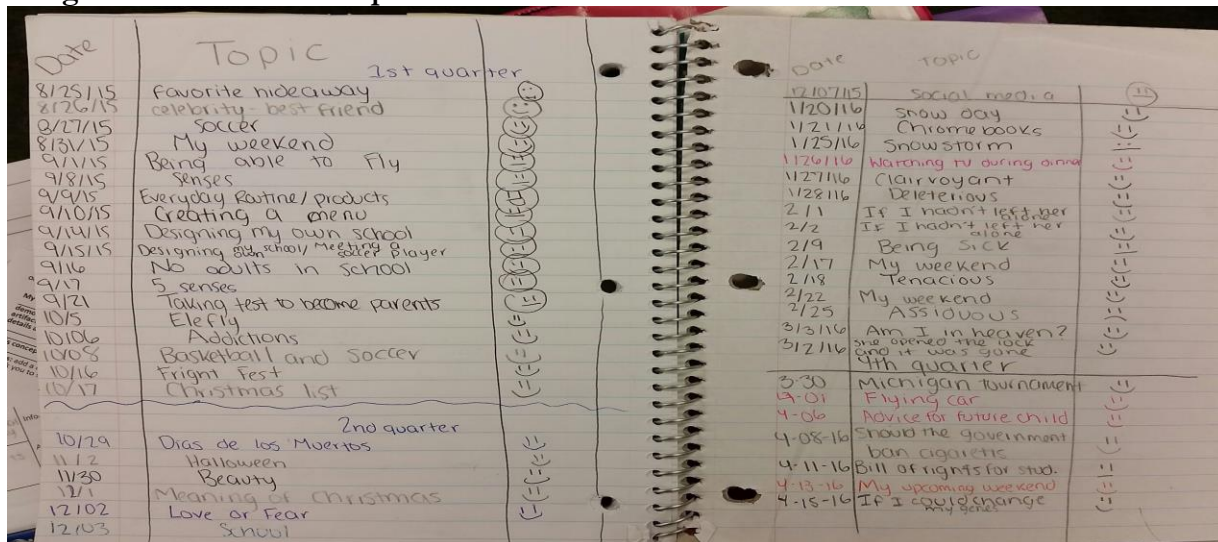 Date Topic
1st quarter
8/25/15 Favorite hideaway
8/26/15 celebrity - best friend
8/27/15 soccer
8/31/15 My weekend
9/1/15 Being able to Fly
9/8/15 senses
9/9/15 Everyday Routine/products
9/10/15 Creating a menu
9/14/15 Designing my own school
9/15/15 Designing my own school/ Meeting a soccer player
9/16 No adults in school
9/17 5 senses
9/21 Taking test to become parents
10/5 Elefly
10/06 Addictions
10/08 Basketball and soccer
10/16 Fright Fest
10/17 Christmas list
2nd quarter
10/29 Dias de los Muertos
11/2 Halloween
11/30 Beauty
12/1 Meaning of Christmas
12/02 Love or Fear
12/03 School
Date Topic
12/07/15 Social media
1/20/16 Snow day
1/21/16 Chromebooks
1/25/16 Snowstorm
1/26/16 Watching tv during dinner
1/27/16 Clairvoyant
1/28/16 Deleterious
2/1 If I hadn't left her alone
2/2 If I hadn't left her alone
2/9 Being Sick
2/17 My weekend
2/18 Tenacious
2/22 My weekend
2/25 Assiduous
3/3/16 Am I in heaven?
3/2/16 she opened the lock
and it was gone
4th quarter
3-30 Michigan tournament
4-01 Flying car
4-06 Advice for future child
4-08-16 Should the government
ban cigaretts
4-11-16 Bill of rights for stud.
4-13-16 My upcoming weekend
4-15-16 If I could change
my genes